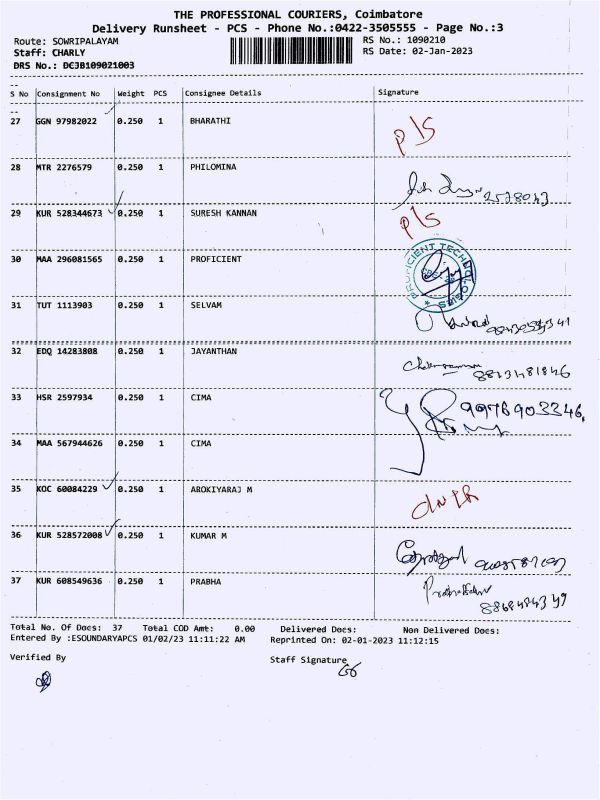 THE PROFESSIONAL COURIERS, Coimbatore
Delivery Runsheet - PCS - Phone No.:0422-3505555 - Page No.:3
Route: SOWRIPALAYAM RS No.: 1090210
Staff: CHARLY RS Date: 02-Jan-2023
DRS No.: DCJB109021003
S No Consignment No Weight PCS Consignee Details Signature
27 GGN 97982022 0.250 1 BHARATHI P/S
28 MTR 2276579 0.250 1 PHILOMINA
29 KUR 528344673 0.250 1 SURESH KANNAN P/S
30 MAA 296081565 0.250 1 PROFICIENT PROFICIENT TECHNOLOGIES
31 TUT 1113903 0.250 1 SELVAM
32 EDQ 14283808 0.250 1 JAYANTHAN
33 HSR 2597934 0.250 1 CIMA
34 MAA 567944626 0.250 1 CIMA
35 KOC 60084229 0.250 1 AROKIYARAJ M
36 KUR 528572008 0.250 1 KUMAR M
37 KUR 608549636 0.250 1 PRABHA
Total No. Of Docs: 37 Total COD Amt: 0.00 Delivered Docs: Non Delivered Docs:
Entered By :ESOUNDARYAPCS 01/02/23 11:11:22 AM Reprinted On: 02-01-2023 11:12:15
Verified By Staff Signature